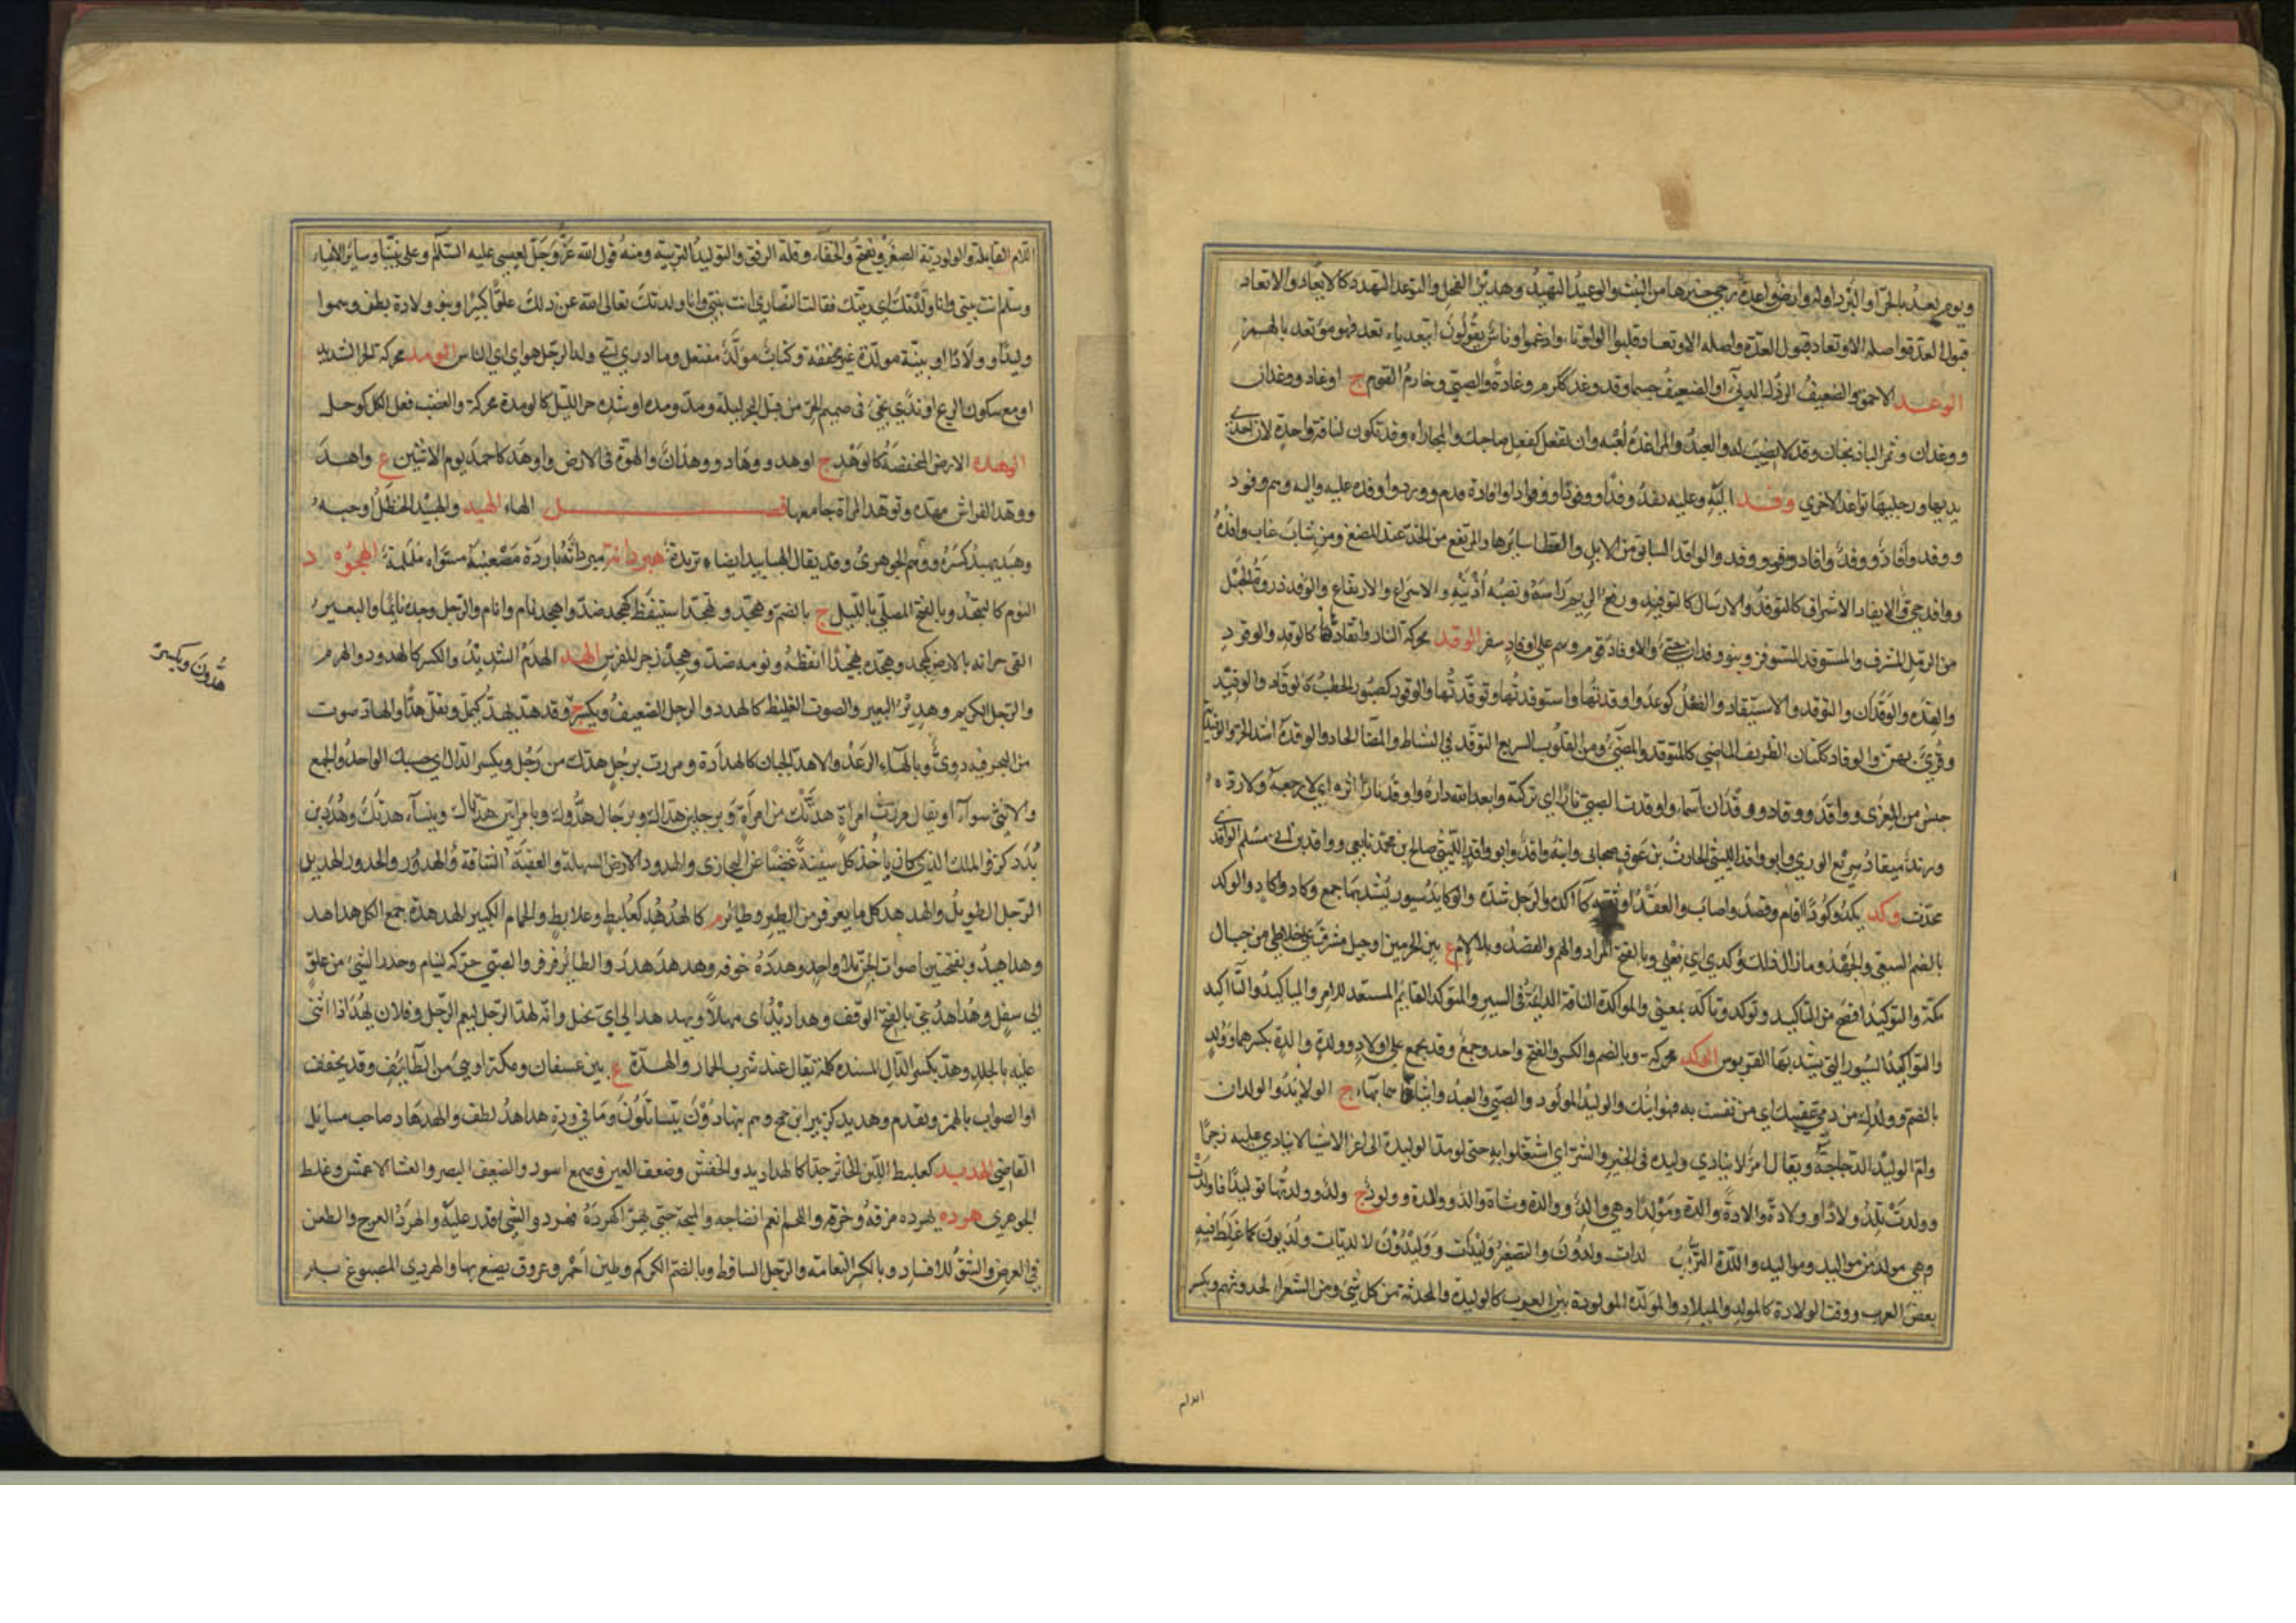 ويوم يعد بالحر او البرد اوله وارض واعدة رجي خيرها من النبت والوعيد التهديد وهدير الفحل والتوعد التهدد كالايعاد والاتعاد
قبول العدة واصله الاوتعاد قلبوا الواو تاء وادغموا وناس يقولون ايتعد ياتعد فهو موتعد بالهمز
الوغد الاحمق والضعيف الرذل الدنيء او الضعيف جسما وقد وغد ككرم وغادة والصبي وخادم القوم ج اوغاد ووغدان
ووغدان وثمر الباذنجان وقدح لا نصيب له والعبد والمواغدة لعبة وان تفعل كفعل صاحبك والمجاراة وقد تكون لناقة واحدة لان احدى
يديها ورجليها تواغد الاخرى وفد اليه وعليه يفد وفدا ووفودا ووفادة وافادة قدم وورد واوفده عليه واليه وهم وفود
ووفد واوفاد ووفد والوافد السابق من الابل والقطا سايرها والمرتفع من الخد عند المضغ ومن شاب غاب وافداه
ووافد حي والايفاد الاشراف كالتوفد والارسال كالتوفيد ورفع الريم راسه ونصبه اذنيه والاسراع والارتفاع والوفد ذروة الحبل
من الرمل المشرف والمستوفد المستوفز وبنو وفدان حي والاوفاد قوم وهم على اوفاد سفر الوقد محركة النار واتقادها كالوقد والوقود
والقدة والوقدان والتوقد والاستيقاد والفعل كوعد واوقدتها واستوقدتها وتوقدتها والوقود كصبور الحطب كالوقاد والوقيد
وقرئ بهن والوقاد ككتان الظريف الماضي كالمتوقد والمضيء ومن القلوب السريع التوقد في النشاط والمضاء الحاد والوقدة اشد الحر والوقيدية
جنس من المعزى وواقد ووقاد ووقدان اسماء واوقدت للصبي نارا اي تركته وابعد الله داره واوقد نارا اثره اي لا رجعه ولا رده
وزند ميقاد سريع الوري وابو واقد الليثي الحارث بن عوف صحابي وابنه واقد وابو واقد الليثي صالح بن محمد تابعي وواقد بن ابي مسلم الواقدي
محدث وكد يكد وكودا اقام وقصد واصاب والعقد اوثقه كاكده والرحل شده والوكايد سيور يشد بها جمع وكاد واكاد والوكد
بالضم السعي والجهد وما زال ذلك وكدي اي فعلي وبالفتح المراد والهم والقصد وبلا لام ع بين الحرمين او جبل مشرف على خلاطى من جبال
مكة والتوكيد افصح من التاكيد وتوكد وتاكد بمعنى والمواكدة الناقة الدائبة في السير والمتوكد القائم المستعد للامر والمياكيد والتاكيد
والتواكيد السيور التي يشد بها القربوس الولد محركة وبالضم والكسر والفتح واحد وجمع وقد يجمع على اولاد وولدة والدة بكسرهما وولد
بالضم وولدك من دمى عقبيك اي من نفست به فهو ابنك والوليد المولود والصبي والعبد وانثاهما بهاء ج الولايد والولدان
وام الوليد الدجاجة ويقال امر لا ينادى وليده في الخير والشر اي اشتغلوا به حتى لو مد الوليد يده الى اعز الاشياء لا ينادى عليه زجرا
وولدت تلد ولادا وولادة والادة والدة ومولدا وهي والد ووالدة وشاة والد ووالدة وولود ج ولد وولدتها توليدا فاولدت
وهي مولد من مواليد وموالد واللدة الترب لدات ولدون والتصغير وليدات ووليدون لا لديات ولديون كما غلط فيه
بعض العرب ووقت الولادة كالمولد والميلاد والمولدة المولودة بين العرب كالوليدة والمحدثة من كل شيء ومن الشعراء لحدوثهم وبكسر
الدام
اللام القابلة والولودية الصغر ويفتح والجفاء وقلة الرفق والتوليد التربية ومنه قول الله عز وجل لعيسى عليه السلام وعلى نبينا وساير الانبياء
وسلم انت نبيي وانا ولدتك اي ربيتك فقالت النصارى انت بنيي وانا ولدتك تعالى الله عن ذلك علوا كبيرا وبنو ولادة بطن وسموا
وليدا وولادا وبينة مولدة غير محققة وكتاب مولد مفتعل وما ادري اي ولد الرجل هو اي اي الناس الومد محركة الحر الشديد
او مع سكون الريح او ندى يجيء في صميم الحر من قبل البحر ليلة ومد ومدة او شدة حر الليل كالومدة محركة والغضب فعل الكل كوجل
الوهدة الارض المنخفضة كالوهد ج اوهد ووهاد ووهدان والهوة في الارض واوهد كاحمد يوم الاثنين ع واهد
ووهد الفراش مهده وتوهد المراة جامعها فصل الهاء الهبيد والهبد الحنظل او حبه
وهبد يهبد كسره ووهم الجوهري وقد يقال الهبابيد ايضا ثريدة هبردانة مبردانة باردة مصعنبة مسواة ململمة الهجود
النوم كالتهجد وبالفتح المصلي بالليل ج بالضم وهجد وتهجد استيقظ كهجد ضد واهجد نام وانام والرجل وجده نائما والبعير
القى جرانه بالارض كهجد وهجده تهجيدا ايقظه ونومه ضد وهجد زجر للفرس الهد الهدم الشديد والكسر كالهدود والهرم
والرجل الكريم وهدير البعير والصوت الغليظ كالهدد والرجل الضعيف ويكسر ج وقد هد يهد كيمل ويقل هدا والهاد صوت
من البحر فيه دوي وبالهاء الرعد والاهد الجبان كالهدادة ومررت برجل هدك من رجل ويكسر الدال اي حسبك الواحد والجمع
والانثى سواء او يقال مررت بامراة هدتك من امراة وبرجلين هداك وبرجال هدوك وبامراتين هدتاك وبنساء هددنك وهدد بن
بدد كزفر الملك الذي كان ياخذ كل سفينة غصبا عن البخاري والهدود الارض السهلة والعقبة الشاقة والهدور والحدور والهديد
الرجل الطويل والهدهد كل ما يقرقر من الطير وطائر م كالهدهد كعلبط وعلابط والحمام الكبير الهدهدة جمع الكل هداهد
وهداهيد وبفتحتين اصوات الجن بلا واحد وهدده خوفه وهدهد هدر والطائر قرقر والصبي حركه لينام وحدر الشيء من علو
الى سفل وهداهد حي بالفتح الرفق وهداديك اي مهلا ويهدهد الي اي يخيل وانه لهد الرجل لنعم الرجل وفلان يهد اذا اثني
عليه بالجلد وهد بكسر الدال المشددة كلمة تقال عند شرب الحمار والهدة ع بين عسفان ومكة او هي من الطائف وقد يخفف
او الصواب بالهمز وتقدم وهديد كزبير ابن جمح وهم يتهادون يتساتلون وما في وده هداهد لطف والهدهاد صاحب مسائل
القاضي الهدبد كعلبط اللبن الخاثر جدا كالهدابد والخفش وضعف العين وصمغ اسود والضعيف البصر والعشا لا عمش وغلط
الجوهري هرده يهرده مزقه وخرقه واللحم انعم انضاجه والبحة حتى يهر اكهرده فهرد والشيء قدر عليه والهرد الهرج والطعن
في العرض والشق للافساد وبالكسر النعامة والرجل الساقط وبالضم الكركم وطين احمر وعروق يصبغ بها والهردي المصبوغ به
هدون ويكسر